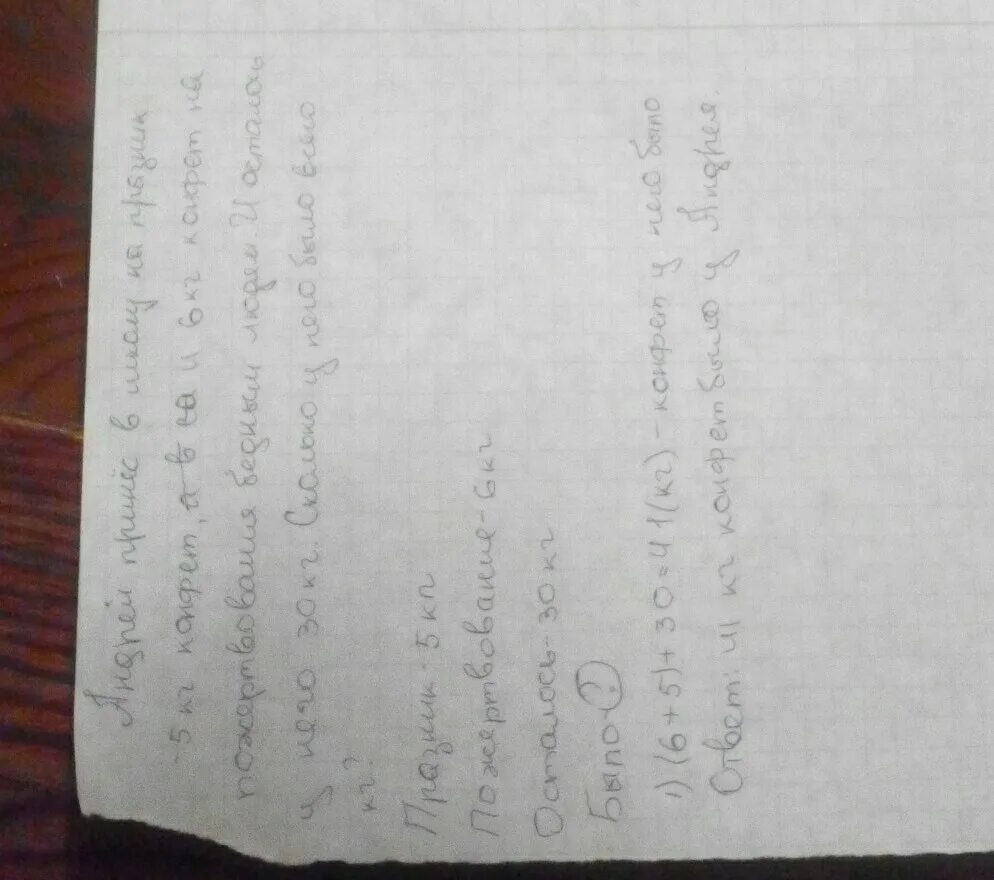 Андрей принёс в школу на празник
5 кг конфет, а в са и 6 кг конфет на
пожертвования бедным людям. И осталось
у него 30 кг. Сколько у него было всего
кг?
Празник - 5 кг
Пожертвование - 6 кг
Осталось - 30 кг
Было - ?
1) (6 + 5) + 30 = 41 (кг) - конфет у него было
Ответ: 41 кг конфет было у Андрея.